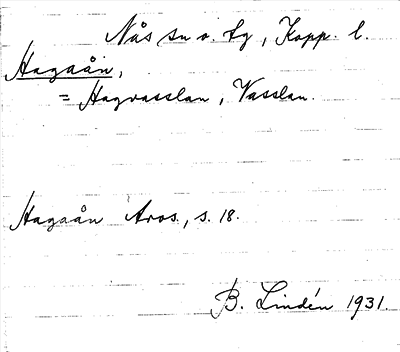 Nås sn o. tg, Kopp. l.
Hagaån,
= Hagvasslan, Vasslan.
Hagaån Aros., s. 18.
B. Lindén 1931.